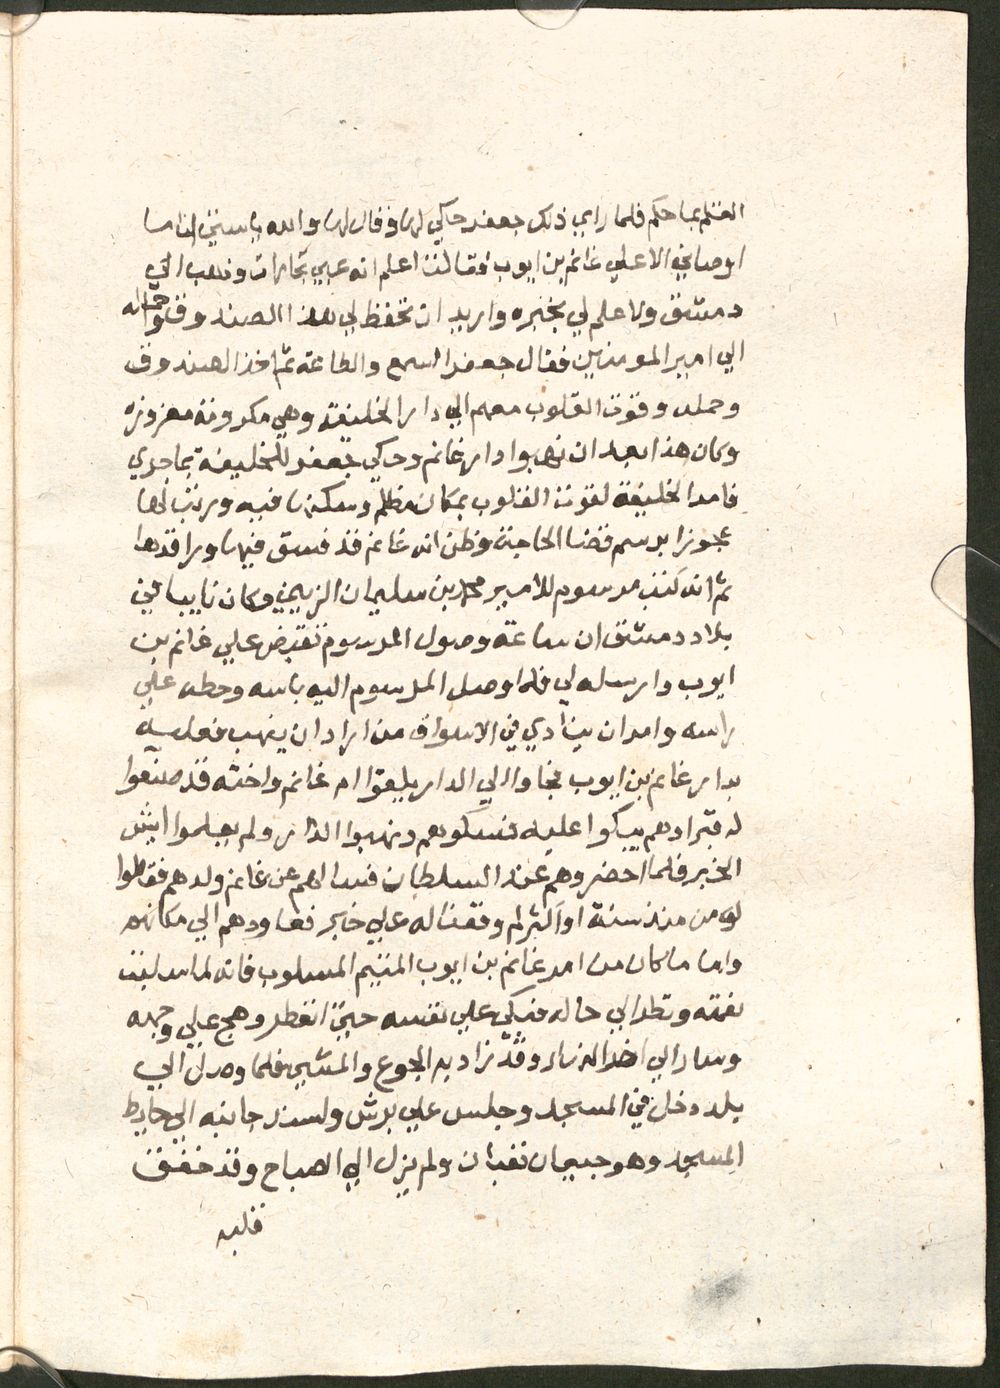 القلم بما حكم فلما راي ذلك جعفر حاكي لها وقال لها والله ياستي اننا ما
اوصاني الا علي غانم بن ايوب فقالت اعلم انه عبي تجارات وذهب الي
دمشق ولا علم لي بخبره واريد ان تحفظ لي هذا الصندوق وحمله
الي امير المومنين فقال جعفر السمع والطاعة ثم اخذ الصندوق
وحمله وقوت القلوب معهم الي دار الخليفة وهي مكرومة معزوزه
وكان هذا بعد ان نهبوا دار غانم وحكي جعفر للخليفة بما جري
فامر الخليفة لقوت القلوب بمكان مظلم وسكنها فيه ورتب لها
عجوزا برسم قضا الحاجة وظن ان غانم قد فسق فيها وراقدها
ثم انه كتب مرسوم للامير محمد بن سليمان الزيني وكان نايبا في
بلاد دمشق ان ساعة وصول المرسوم تقبض علي غانم بن
ايوب وارسله لي فلما وصل المرسوم اليه باسه وحطه علي
راسه وامر ان ينادي في الاسواق من اراد ان ينهب فعليه
بدار غانم بن ايوب فجاوا الي الدار يلقوا ام غانم واخته قد صنعوا
له قبر وهم يبكوا عليه فمسكوهم ونهبوا الدار ولم يعلموا ايش
الخبر فلما احضروهم عند السلطان فسالهم عن غانم ولدهم فقالوا
له من منذ سنة او اكثر لم وقفنا له علي خبر فعاودهم الي مكانهم
واما ما كان من امر غانم بن ايوب المتيم المسلوب فانه لما سلبت
نعمته ونظر الي حاله فبكي علي نفسه حتي انفطر وهج علي وجهه
وسار الي اخر النهار وقد زاد به الجوع والمشي فلما وصل الي
بلد دخل في المسجد وجلس علي برش واسند جانبه الي حايط
المسجد وهو جيعان تعبان ولم يزل الي الصباح وقد خفق
قلبه